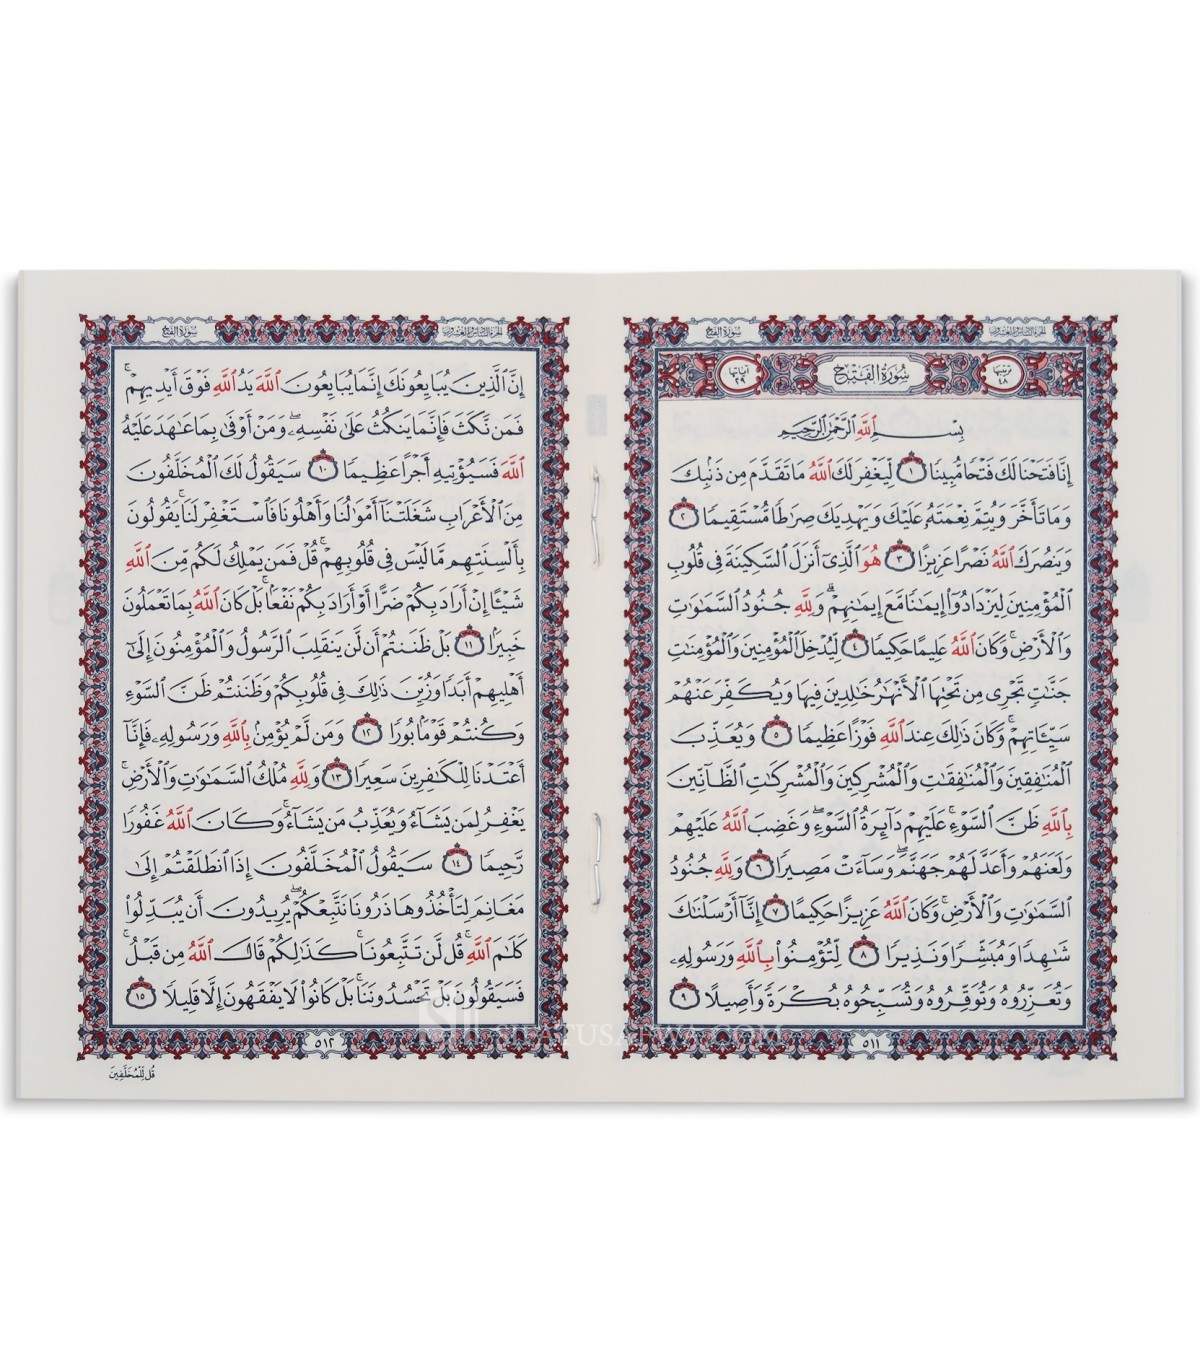 سُورَةُ الفَتْح
الجزء السادس والعشرون
ترتيبها ٤٨
سُورَةُ الفَتْحِ
آياتها ٢٩
بِسْمِ ٱللَّهِ ٱلرَّحْمَٰنِ ٱلرَّحِيمِ
إِنَّا فَتَحْنَا لَكَ فَتْحًا مُّبِينًا ١ لِّيَغْفِرَ لَكَ ٱللَّهُ مَا تَقَدَّمَ مِن ذَنۢبِكَ
وَمَا تَأَخَّرَ وَيُتِمَّ نِعْمَتَهُۥ عَلَيْكَ وَيَهْدِيَكَ صِرَٰطًا مُّسْتَقِيمًا ٢
وَيَنصُرَكَ ٱللَّهُ نَصْرًا عَزِيزًا ٣ هُوَ ٱلَّذِىٓ أَنزَلَ ٱلسَّكِينَةَ فِى قُلُوبِ
ٱلْمُؤْمِنِينَ لِيَزْدَادُوٓا۟ إِيمَٰنًا مَّعَ إِيمَٰنِهِمْ ۗ وَلِلَّهِ جُنُودُ ٱلسَّمَٰوَٰتِ
وَٱلْأَرْضِ ۚ وَكَانَ ٱللَّهُ عَلِيمًا حَكِيمًا ٤ لِّيُدْخِلَ ٱلْمُؤْمِنِينَ وَٱلْمُؤْمِنَٰتِ
جَنَّٰتٍ تَجْرِى مِن تَحْتِهَا ٱلْأَنْهَٰرُ خَٰلِدِينَ فِيهَا وَيُكَفِّرَ عَنْهُمْ
سَيِّـَٔاتِهِمْ ۚ وَكَانَ ذَٰلِكَ عِندَ ٱللَّهِ فَوْزًا عَظِيمًا ٥ وَيُعَذِّبَ
ٱلْمُنَٰفِقِينَ وَٱلْمُنَٰفِقَٰتِ وَٱلْمُشْرِكِينَ وَٱلْمُشْرِكَٰتِ ٱلظَّآنِّينَ
بِٱللَّهِ ظَنَّ ٱلسَّوْءِ ۚ عَلَيْهِمْ دَآئِرَةُ ٱلسَّوْءِ ۖ وَغَضِبَ ٱللَّهُ عَلَيْهِمْ
وَلَعَنَهُمْ وَأَعَدَّ لَهُمْ جَهَنَّمَ ۖ وَسَآءَتْ مَصِيرًا ٦ وَلِلَّهِ جُنُودُ
ٱلسَّمَٰوَٰتِ وَٱلْأَرْضِ ۚ وَكَانَ ٱللَّهُ عَزِيزًا حَكِيمًا ٧ إِنَّآ أَرْسَلْنَٰكَ
شَٰهِدًا وَمُبَشِّرًا وَنَذِيرًا ٨ لِّتُؤْمِنُوا۟ بِٱللَّهِ وَرَسُولِهِۦ
وَتُعَزِّرُوهُ وَتُوَقِّرُوهُ وَتُسَبِّحُوهُ بُكْرَةً وَأَصِيلًا ٩
٥١١
سُورَةُ الفَتْح
الجزء السادس والعشرون
إِنَّ ٱلَّذِينَ يُبَايِعُونَكَ إِنَّمَا يُبَايِعُونَ ٱللَّهَ يَدُ ٱللَّهِ فَوْقَ أَيْدِيهِمْ ۚ
فَمَن نَّكَثَ فَإِنَّمَا يَنكُثُ عَلَىٰ نَفْسِهِۦ ۖ وَمَنْ أَوْفَىٰ بِمَا عَٰهَدَ عَلَيْهُ
ٱللَّهَ فَسَيُؤْتِيهِ أَجْرًا عَظِيمًا ١٠ سَيَقُولُ لَكَ ٱلْمُخَلَّفُونَ
مِنَ ٱلْأَعْرَابِ شَغَلَتْنَآ أَمْوَٰلُنَا وَأَهْلُونَا فَٱسْتَغْفِرْ لَنَا ۚ يَقُولُونَ
بِأَلْسِنَتِهِم مَّا لَيْسَ فِى قُلُوبِهِمْ ۚ قُلْ فَمَن يَمْلِكُ لَكُم مِّنَ ٱللَّهِ
شَيْـًٔا إِنْ أَرَادَ بِكُمْ ضَرًّا أَوْ أَرَادَ بِكُمْ نَفْعًۢا ۚ بَلْ كَانَ ٱللَّهُ بِمَا تَعْمَلُونَ
خَبِيرًۢا ١١ بَلْ ظَنَنتُمْ أَن لَّن يَنقَلِبَ ٱلرَّسُولُ وَٱلْمُؤْمِنُونَ إِلَىٰٓ
أَهْلِيهِمْ أَبَدًا وَزُيِّنَ ذَٰلِكَ فِى قُلُوبِكُمْ وَظَنَنتُمْ ظَنَّ ٱلسَّوْءِ
وَكُنتُمْ قَوْمًۢا بُورًا ١٢ وَمَن لَّمْ يُؤْمِنۢ بِٱللَّهِ وَرَسُولِهِۦ فَإِنَّآ
أَعْتَدْنَا لِلْكَٰفِرِينَ سَعِيرًا ١٣ وَلِلَّهِ مُلْكُ ٱلسَّمَٰوَٰتِ وَٱلْأَرْضِ ۚ
يَغْفِرُ لِمَن يَشَآءُ وَيُعَذِّبُ مَن يَشَآءُ ۚ وَكَانَ ٱللَّهُ غَفُورًا
رَّحِيمًا ١٤ سَيَقُولُ ٱلْمُخَلَّفُونَ إِذَا ٱنطَلَقْتُمْ إِلَىٰ
مَغَانِمَ لِتَأْخُذُوهَا ذَرُونَا نَتَّبِعْكُمْ ۖ يُرِيدُونَ أَن يُبَدِّلُوا۟
كَلَٰمَ ٱللَّهِ ۚ قُل لَّن تَتَّبِعُونَا كَذَٰلِكُمْ قَالَ ٱللَّهُ مِن قَبْلُ ۖ
فَسَيَقُولُونَ بَلْ تَحْسُدُونَنَا ۚ بَلْ كَانُوا۟ لَا يَفْقَهُونَ إِلَّا قَلِيلًا ١٥
٥١٢
قُل لِّلْمُخَلَّفِينَ